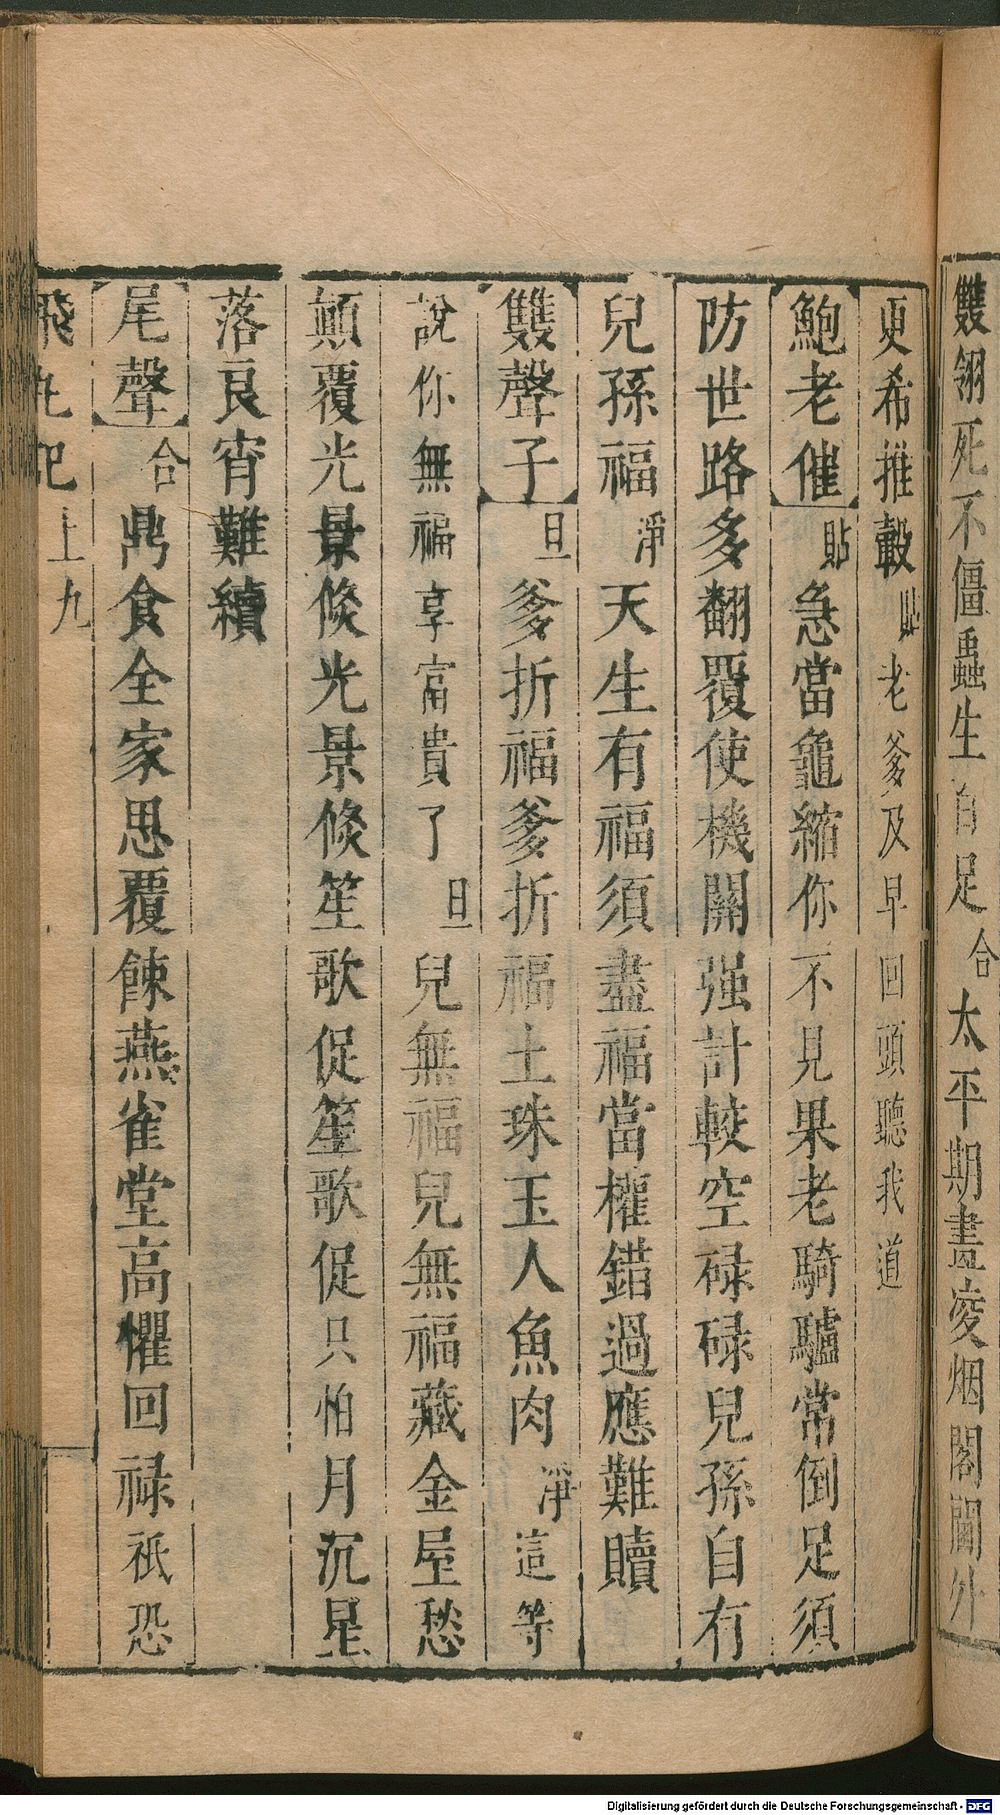 雙翎死不僵蟲生百足合太平期畫凌烟閣閫外
更希推轂貼老爹及早回頭聽我道
鮑老催貼急當龜縮你不見果老騎驢常倒足須
防世路多翻覆使機關强計較空碌碌兒孫自有
兒孫福淨天生有福須盡福當權錯過應難贖
雙聲子旦爹折福爹折福土珠玉人魚肉淨這等
說你無福享富貴了旦兒無福兒無福藏金屋愁
顛覆光景倐光景倐笙歌促笙歌促只怕月沉星
落良宵難續
尾聲合鼎食全家思覆餗燕雀堂高懼回祿祇恐
飛丸記上九
Digitalisierung gefördert durch die Deutsche Forschungsgemeinschaft - DFG